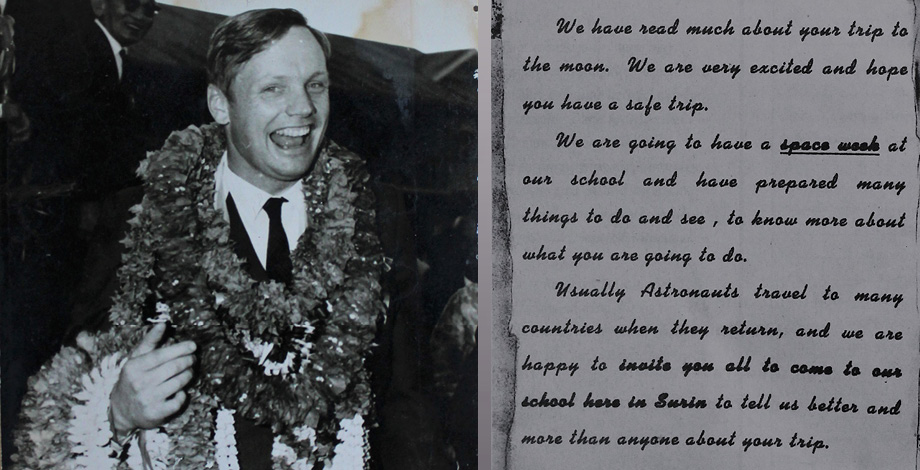 We have read much about your trip to
the moon. We are very excited and hope
you have a safe trip.
We are going to have a space week at
our school and have prepared many
things to do and see , to know more about
what you are going to do.
Usually Astronauts travel to many
countries when they return, and we are
happy to invite you all to come to our
school here in Surin to tell us better and
more than anyone about your trip.